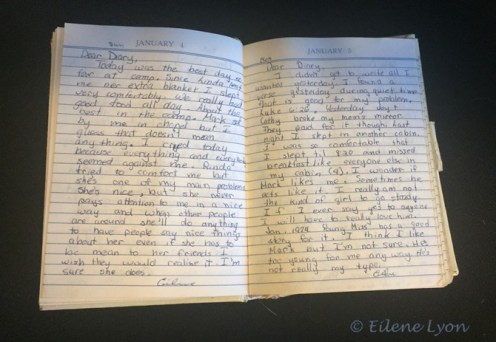 JANUARY 4
Dear Diary,
Today was the best day so
far at camp. Since Linda lent
me her extra blanket I slept
very comfortably. We really had
good food all day
best in the camp. Mark sat
by me in chapel but I
guess that doesn't mean
anything. I cried today
because everything and everybody
seemed against me. Linda
tried to comfort me but
she's one of my main problems.
She's nice, but she never
pays attention to me in a nice
way and when other people
are around she'll do anything
to have people say nice things
about her even if she has to
be mean to her friends. I
wish they would realize it I'm
sure she does.
JANUARY 5
Dear Diary,
I didn't get to write all I
wanted yesterday. I found a
verse yesterday during quiet time
that is good for my problem.
Luke 6:22
Cathy broke my mom's mirror.
They paid for it though. Last
night I slept in another cabin.
I was so comfortable that
I slept til and missed
breakfast like everyone else in
my cabin (4). I wonder if
Mark likes me. Sometimes he
acts like it. I really am not
the kind of girl to go steady.
If I ever should get someone
I will have to really love him.
Jan. 1974 "Young Miss" has a good
story for it. I think I like
Mark but I'm not sure. He's
too young for me any way. He's
not really my type.
© Eilene Lyon